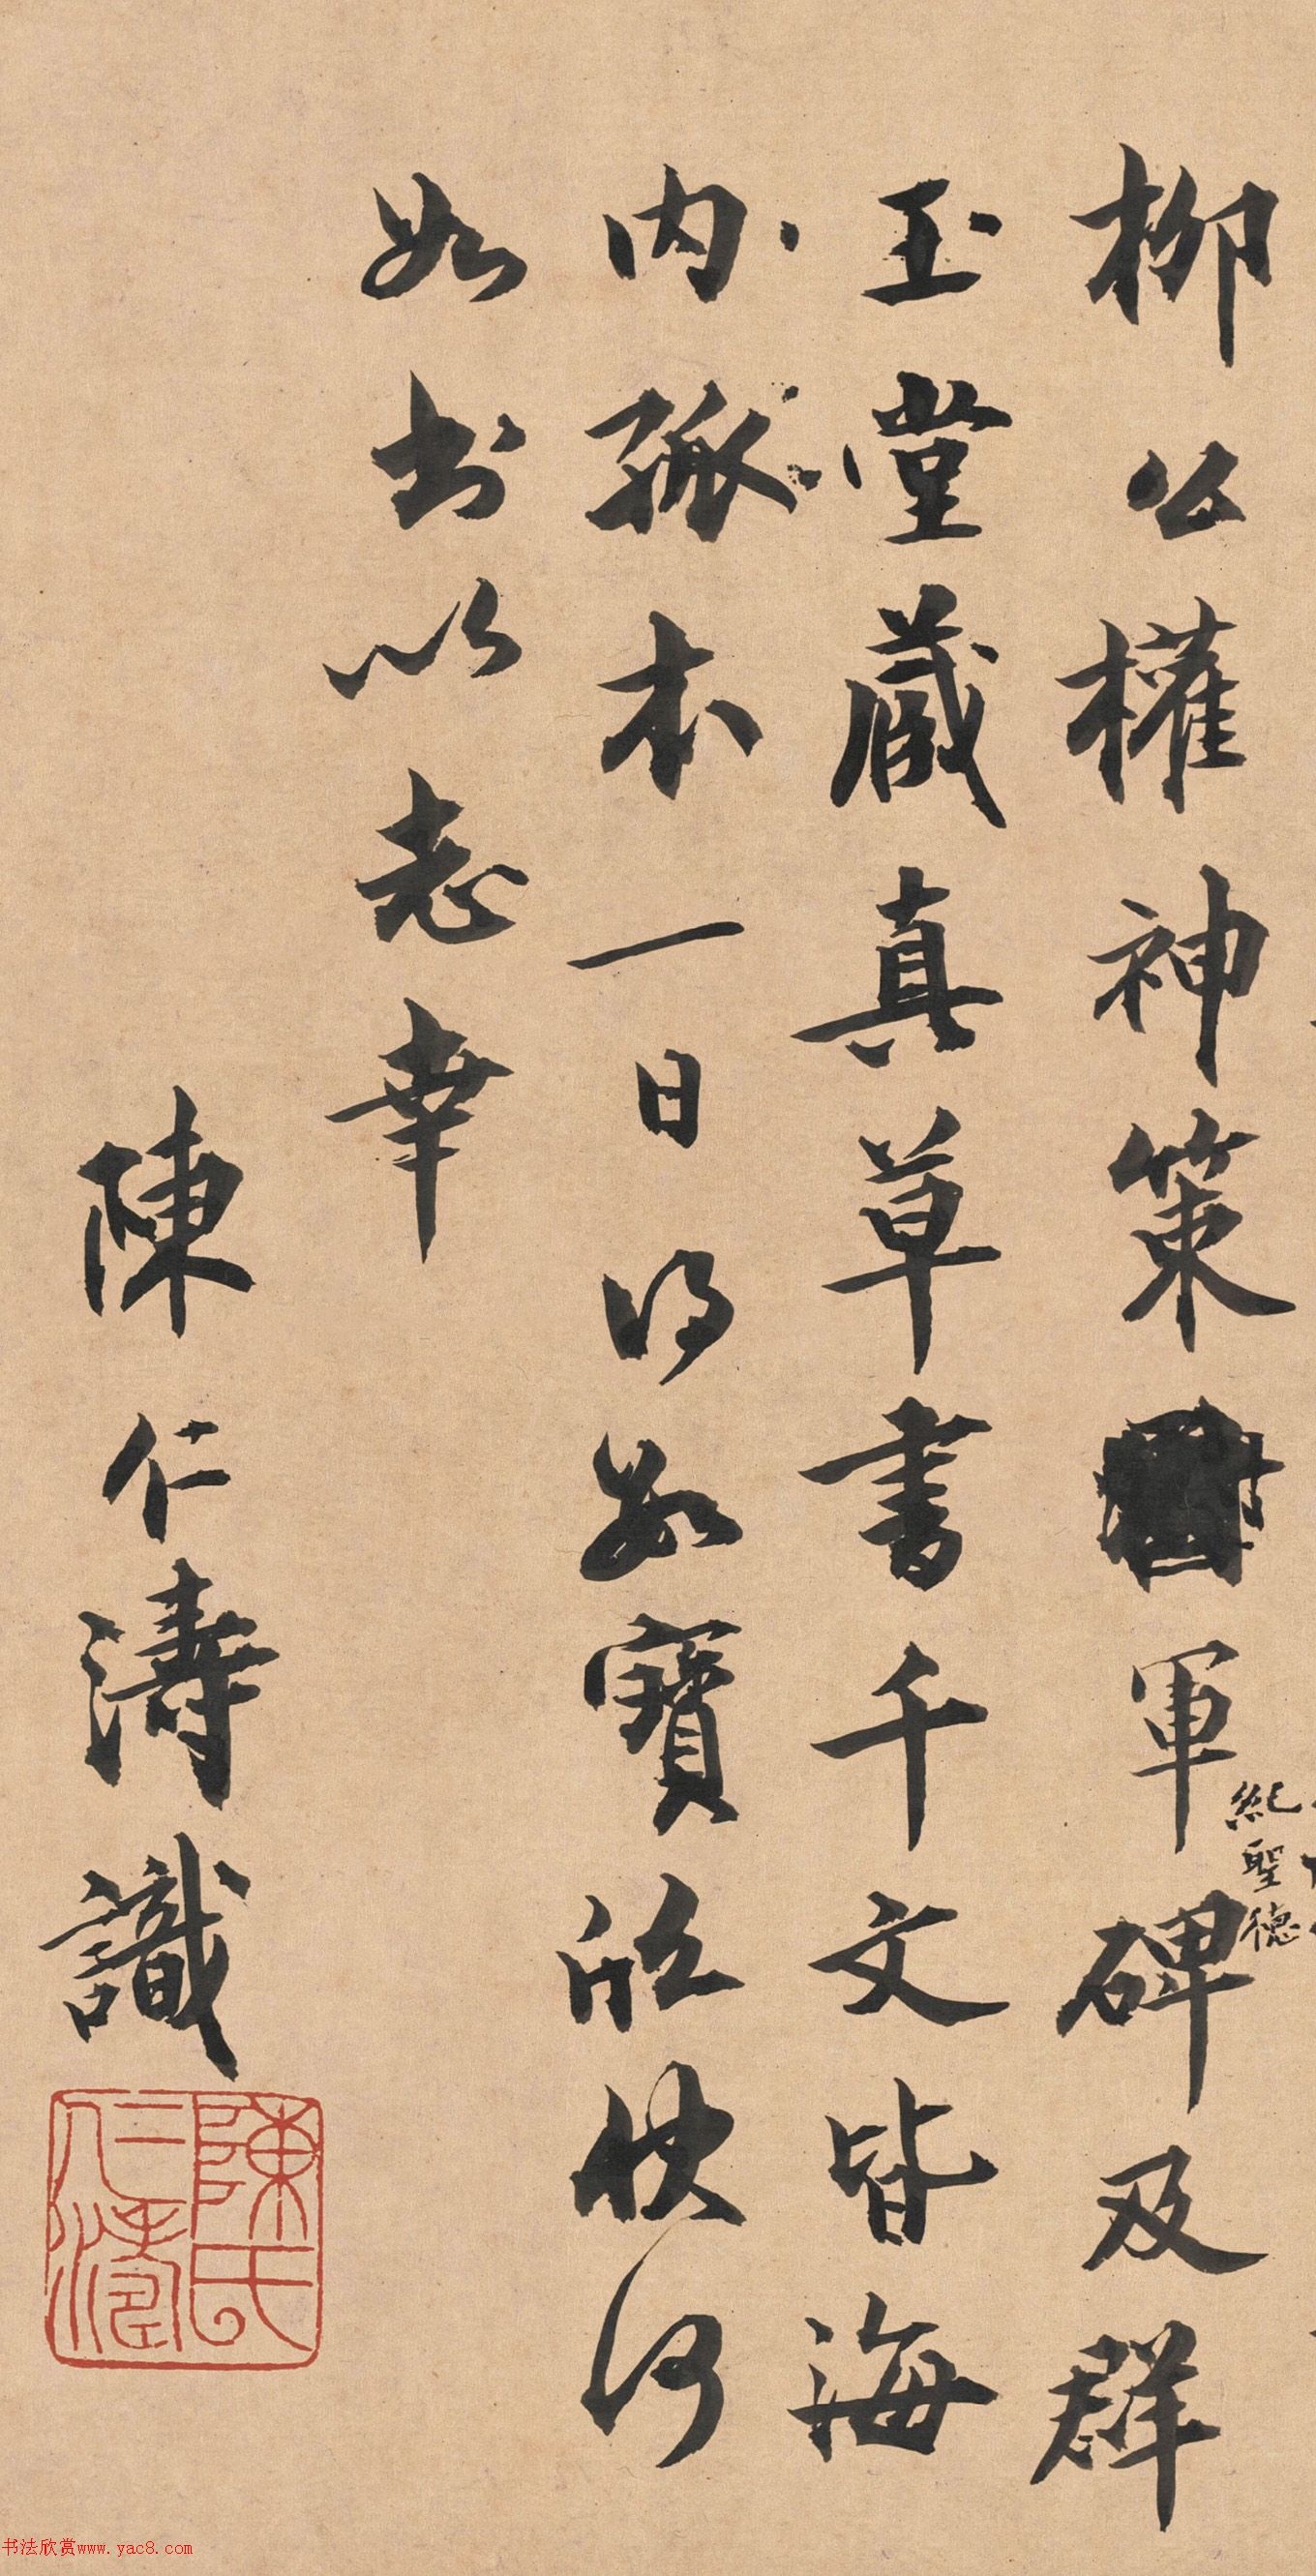 柳公權神策軍碑及群
紀聖德
玉堂藏真草書千文皆海
内孤本一日得數寶欣快何
如書以志幸
陳仁濤識
陳氏仁濤
书法欣赏www.yac8.com